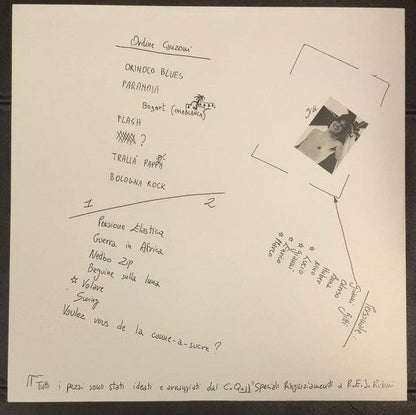 Ordine Canzoni
ORINOCO BLUES
PARANOIA
Bogart (CASABLANCA)
FLASH
?
TRALLÀ PAPPA
BOLOGNA ROCK
1 2
Pensione Elastica
Guerra in Africa
Nedbo Zip
Beguine sulla luna
Volare
Swing
Voulez vous de la canne-à-sucre?
Personale:
Gianni
Nino
Lucio
Gianni
Enrico
Marco
Tutti i pezzi sono stati ideati e arrangiati dal C.Q.11° Speciali Ringraziamenti a R.E.I.